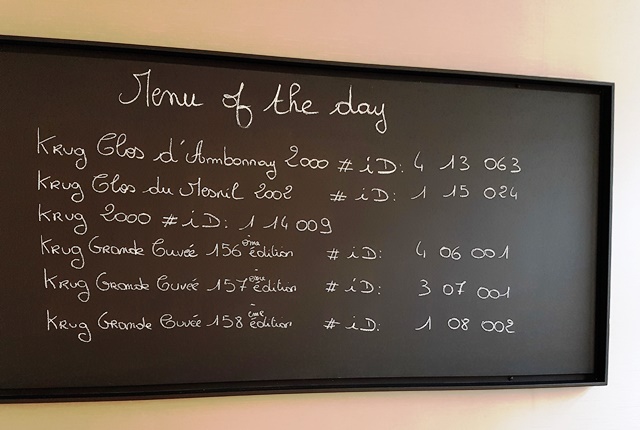 Menu of the day
Krug Clos d'Ambonnay 2000 # iD: 4 13 063
Krug Clos du Mesnil 2002 # iD: 1 15 024
Krug 2000 # iD: 1 14 009
Krug Grande Cuvée 156ème édition # iD: 4 06 001
Krug Grande Cuvée 157ème édition # iD: 3 07 001
Krug Grande Cuvée 158ème édition # iD: 1 08 002